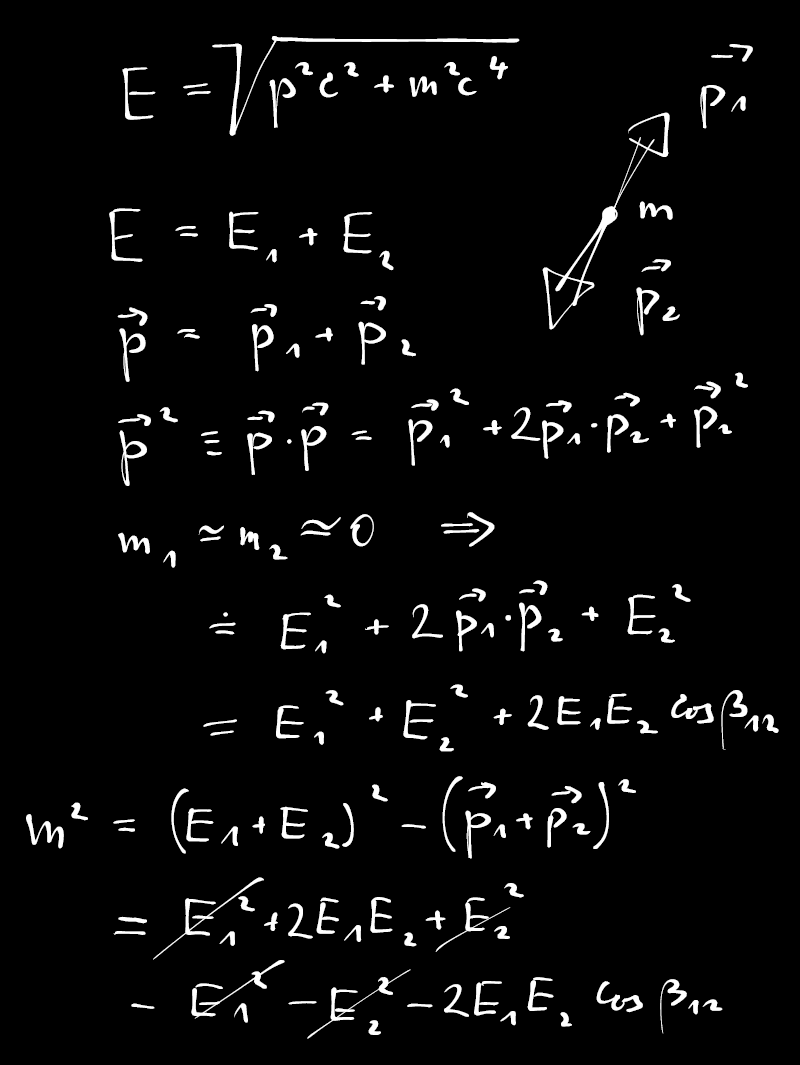 E = √(p²c² + m²c⁴)
p⃗₁
m
p⃗₂
E = E₁ + E₂
p⃗ = p⃗₁ + p⃗₂
p⃗² ≡ p⃗·p⃗ = p⃗₁² + 2p⃗₁·p⃗₂ + p⃗₂²
m₁ ≃ m₂ ≈ 0 ⇒
≐ E₁² + 2p⃗₁·p⃗₂ + E₂²
= E₁² + E₂² + 2E₁E₂ cos β₁₂
m² = (E₁+E₂)² − (p⃗₁+p⃗₂)²
= E₁² + 2E₁E₂ + E₂²
− E₁² − E₂² − 2E₁E₂ cos β₁₂